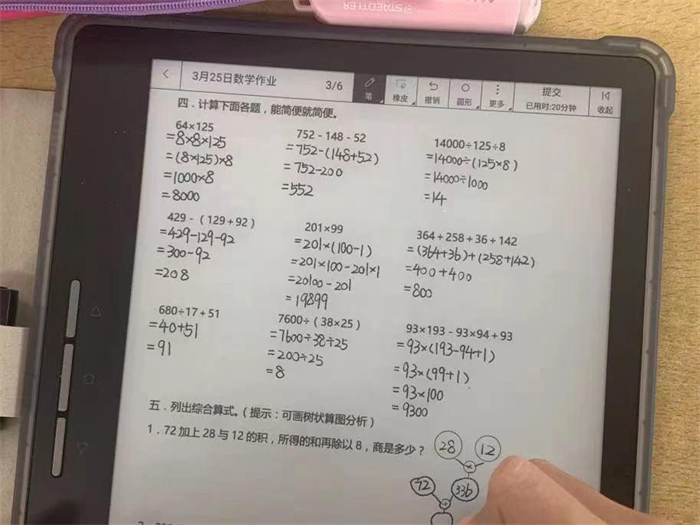 STAEDTLER
3月25日数学作业
3/6
笔
橡皮
撤销
圆形
更多
提交
已用时:20分钟
收起
四．计算下面各题，能简便就简便。
64×125
=8×8×125
=(8×125)×8
=1000×8
=8000
752-148-52
=752-(148+52)
=752-200
=552
14000÷125÷8
=14000÷(125×8)
=14000÷1000
=14
429-（129+92）
=429-129-92
=300-92
=208
201×99
=201×(100-1)
=201×100-201×1
=20100-201
=19899
364+258+36+142
=(364+36)+(258+142)
=400+400
=800
680÷17+51
=40+51
=91
7600÷（38×25）
=7600÷38÷25
=200÷25
=8
93×193-93×94+93
=93×(193-94+1)
=93×(99+1)
=93×100
=9300
五．列出综合算式。（提示：可画树状算图分析）
1．72加上28与12的积，所得的和再除以8，商是多少？
28
12
×
72
336
+